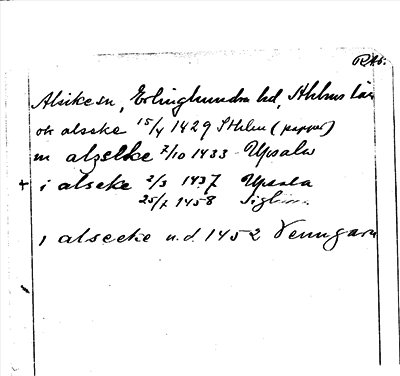 RAb.
Alsike sn, Erlinghundra hd, Sthlms län
ok alseke 15/4 1429 Sthlm (papper)
in alzelke 7/10 1433 Upsala
+ i alseke 2/3 1437 Upsala
25/7 1458
i alsecke u.d. 1452 Venngarn